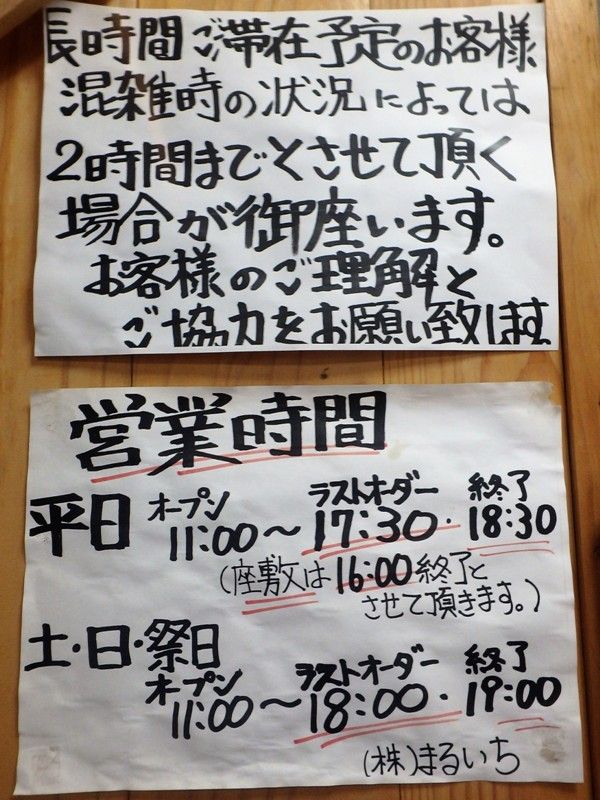 長時間ご滞在予定のお客様
混雑時の状況によっては
2時間までとさせて頂く
場合が御座います。
お客様のご理解と
ご協力をお願い致します
営業時間
平日 オープン 11:00～ ラストオーダー 17:30・ 終了 18:30
(座敷は16:00終了と
させて頂きます。)
土・日・祭日
オープン 11:00～ ラストオーダー 18:00・ 終了 19:00
(株)まるいち